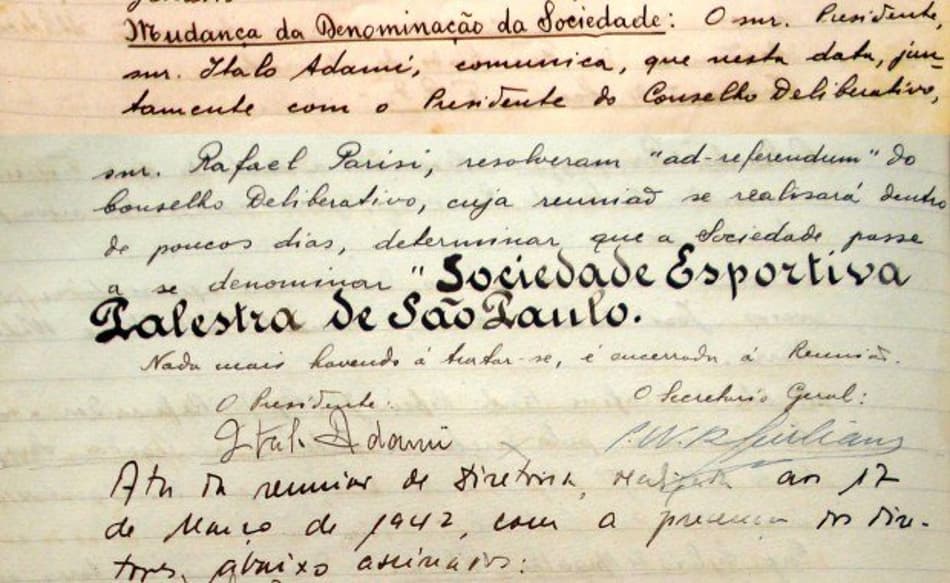 Mudança da Denominação da Sociedade: O snr. Presidente,
snr. Italo Adami, comunica, que nesta data, jun-
tamente com o Presidente do Conselho Deliberativo,
snr. Rafael Parisi, resolveram "ad-referendum" do
Conselho Deliberativo, cuja reunião se realisará dentro
de poucos dias, determinar que a Sociedade passe
a se denominar "Sociedade Esportiva
Palestra de São Paulo.
Nada mais havendo á tratar-se, é encerrada á Reunião.
O Presidente: O Secretario Geral:
Italo Adami
Ata da reunião de Diretoria, realizada aos 17
de Março de 1942, com a presença dos dire-
tores, abaixo assinados: